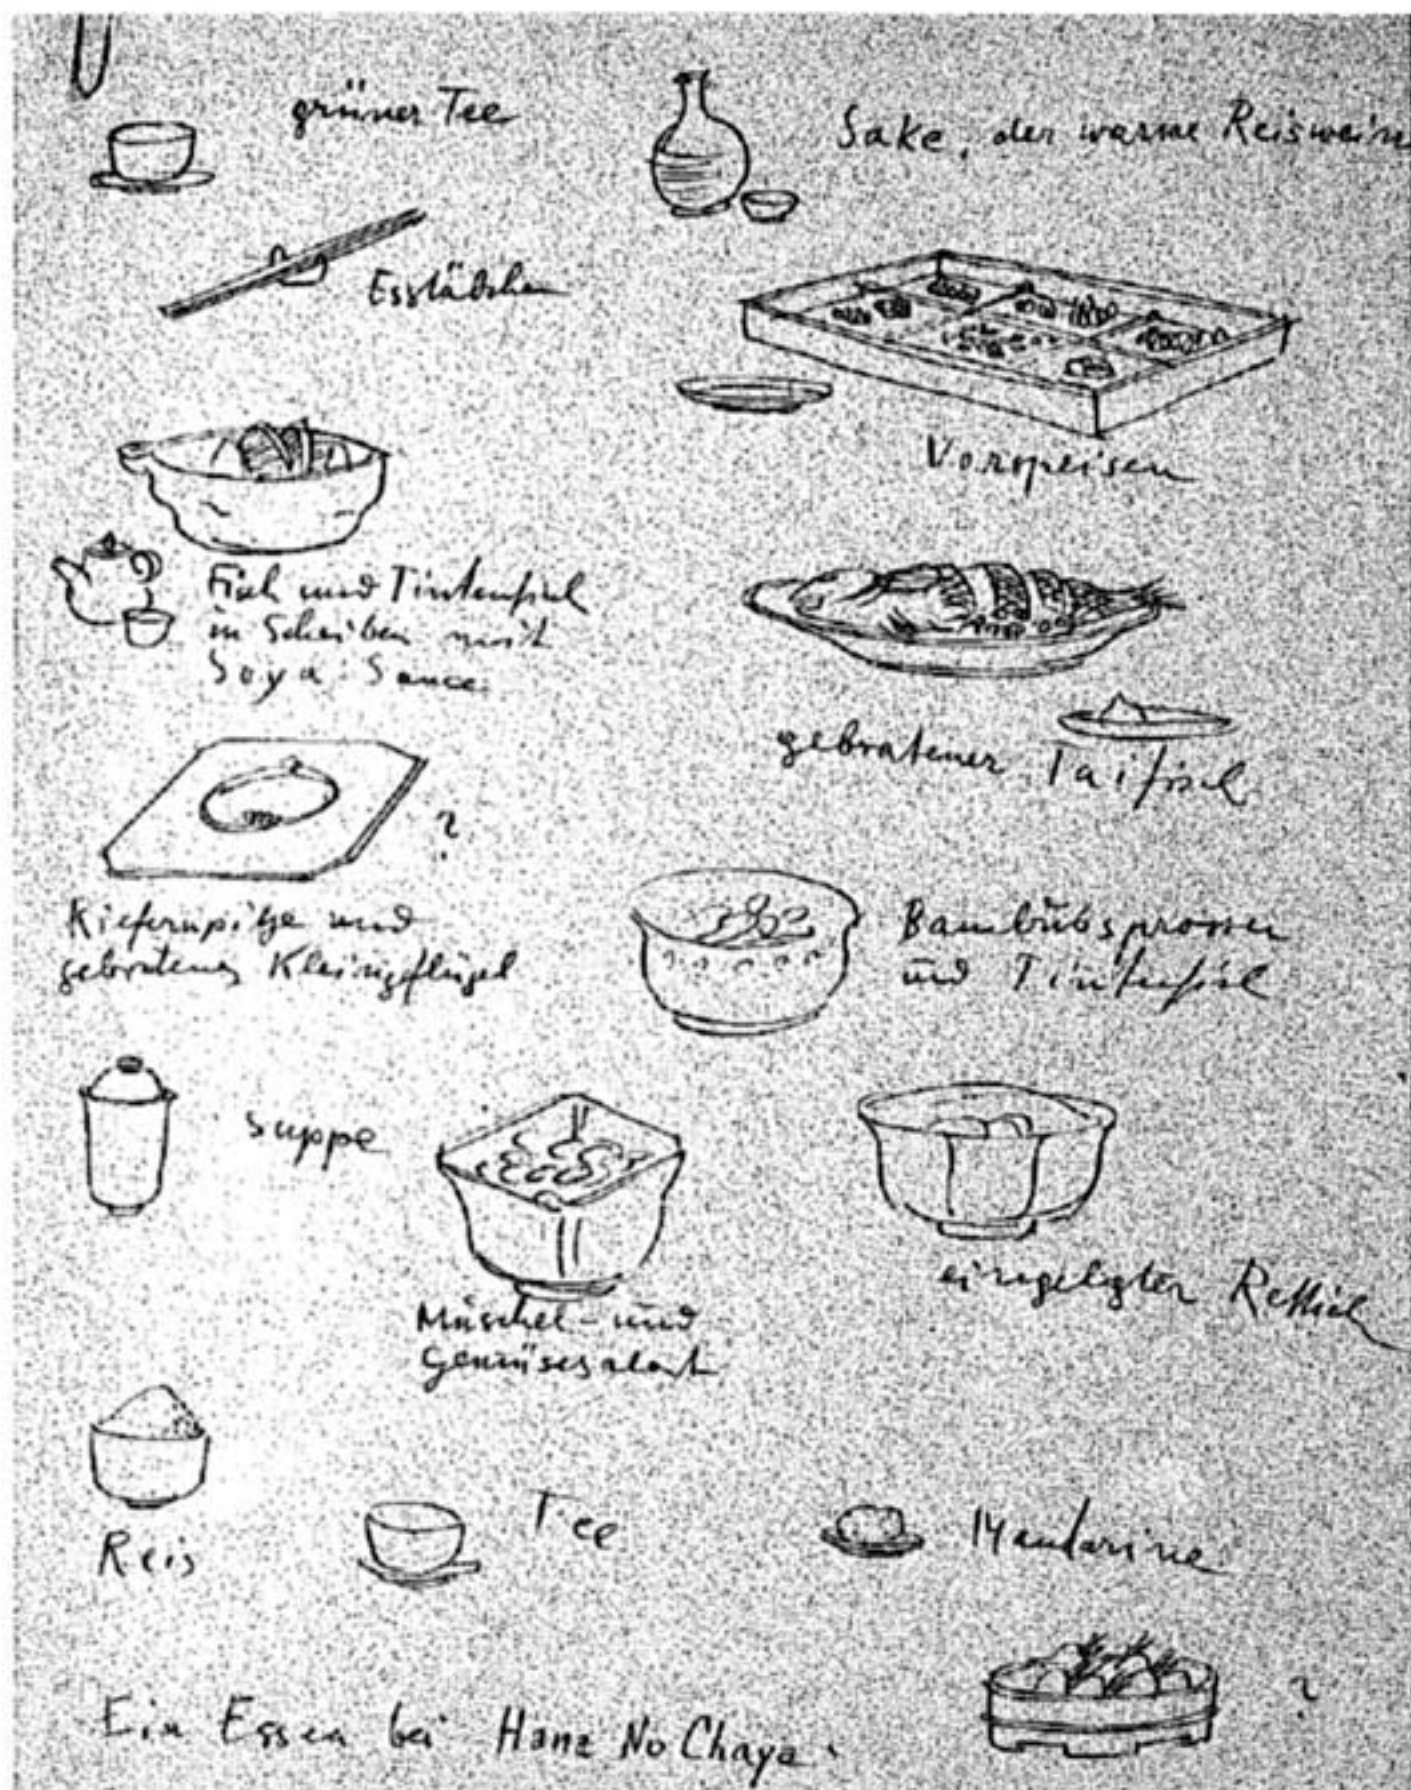 grüner Tee
Sake, der warme Reiswein
Esstäbchen
Vorspeisen
Fisch und Tintenfisch
in Scheiben mit
Soya-Sauce
gebratener Taifisch
?
Kiefernspitze und
gebratenes Kleingeflügel
Bambusssprossen
und Tintenfisch
Suppe
Muschel- und
Gemüsesalat
eingelegter Rettich
Reis
Tee
Mandarine
?
Ein Essen bei Hana No Chaya.